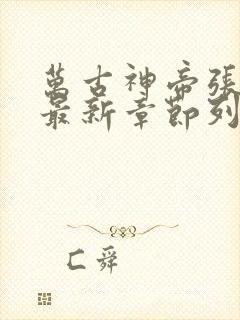 萬古神帝張
最新章節列
匚舜